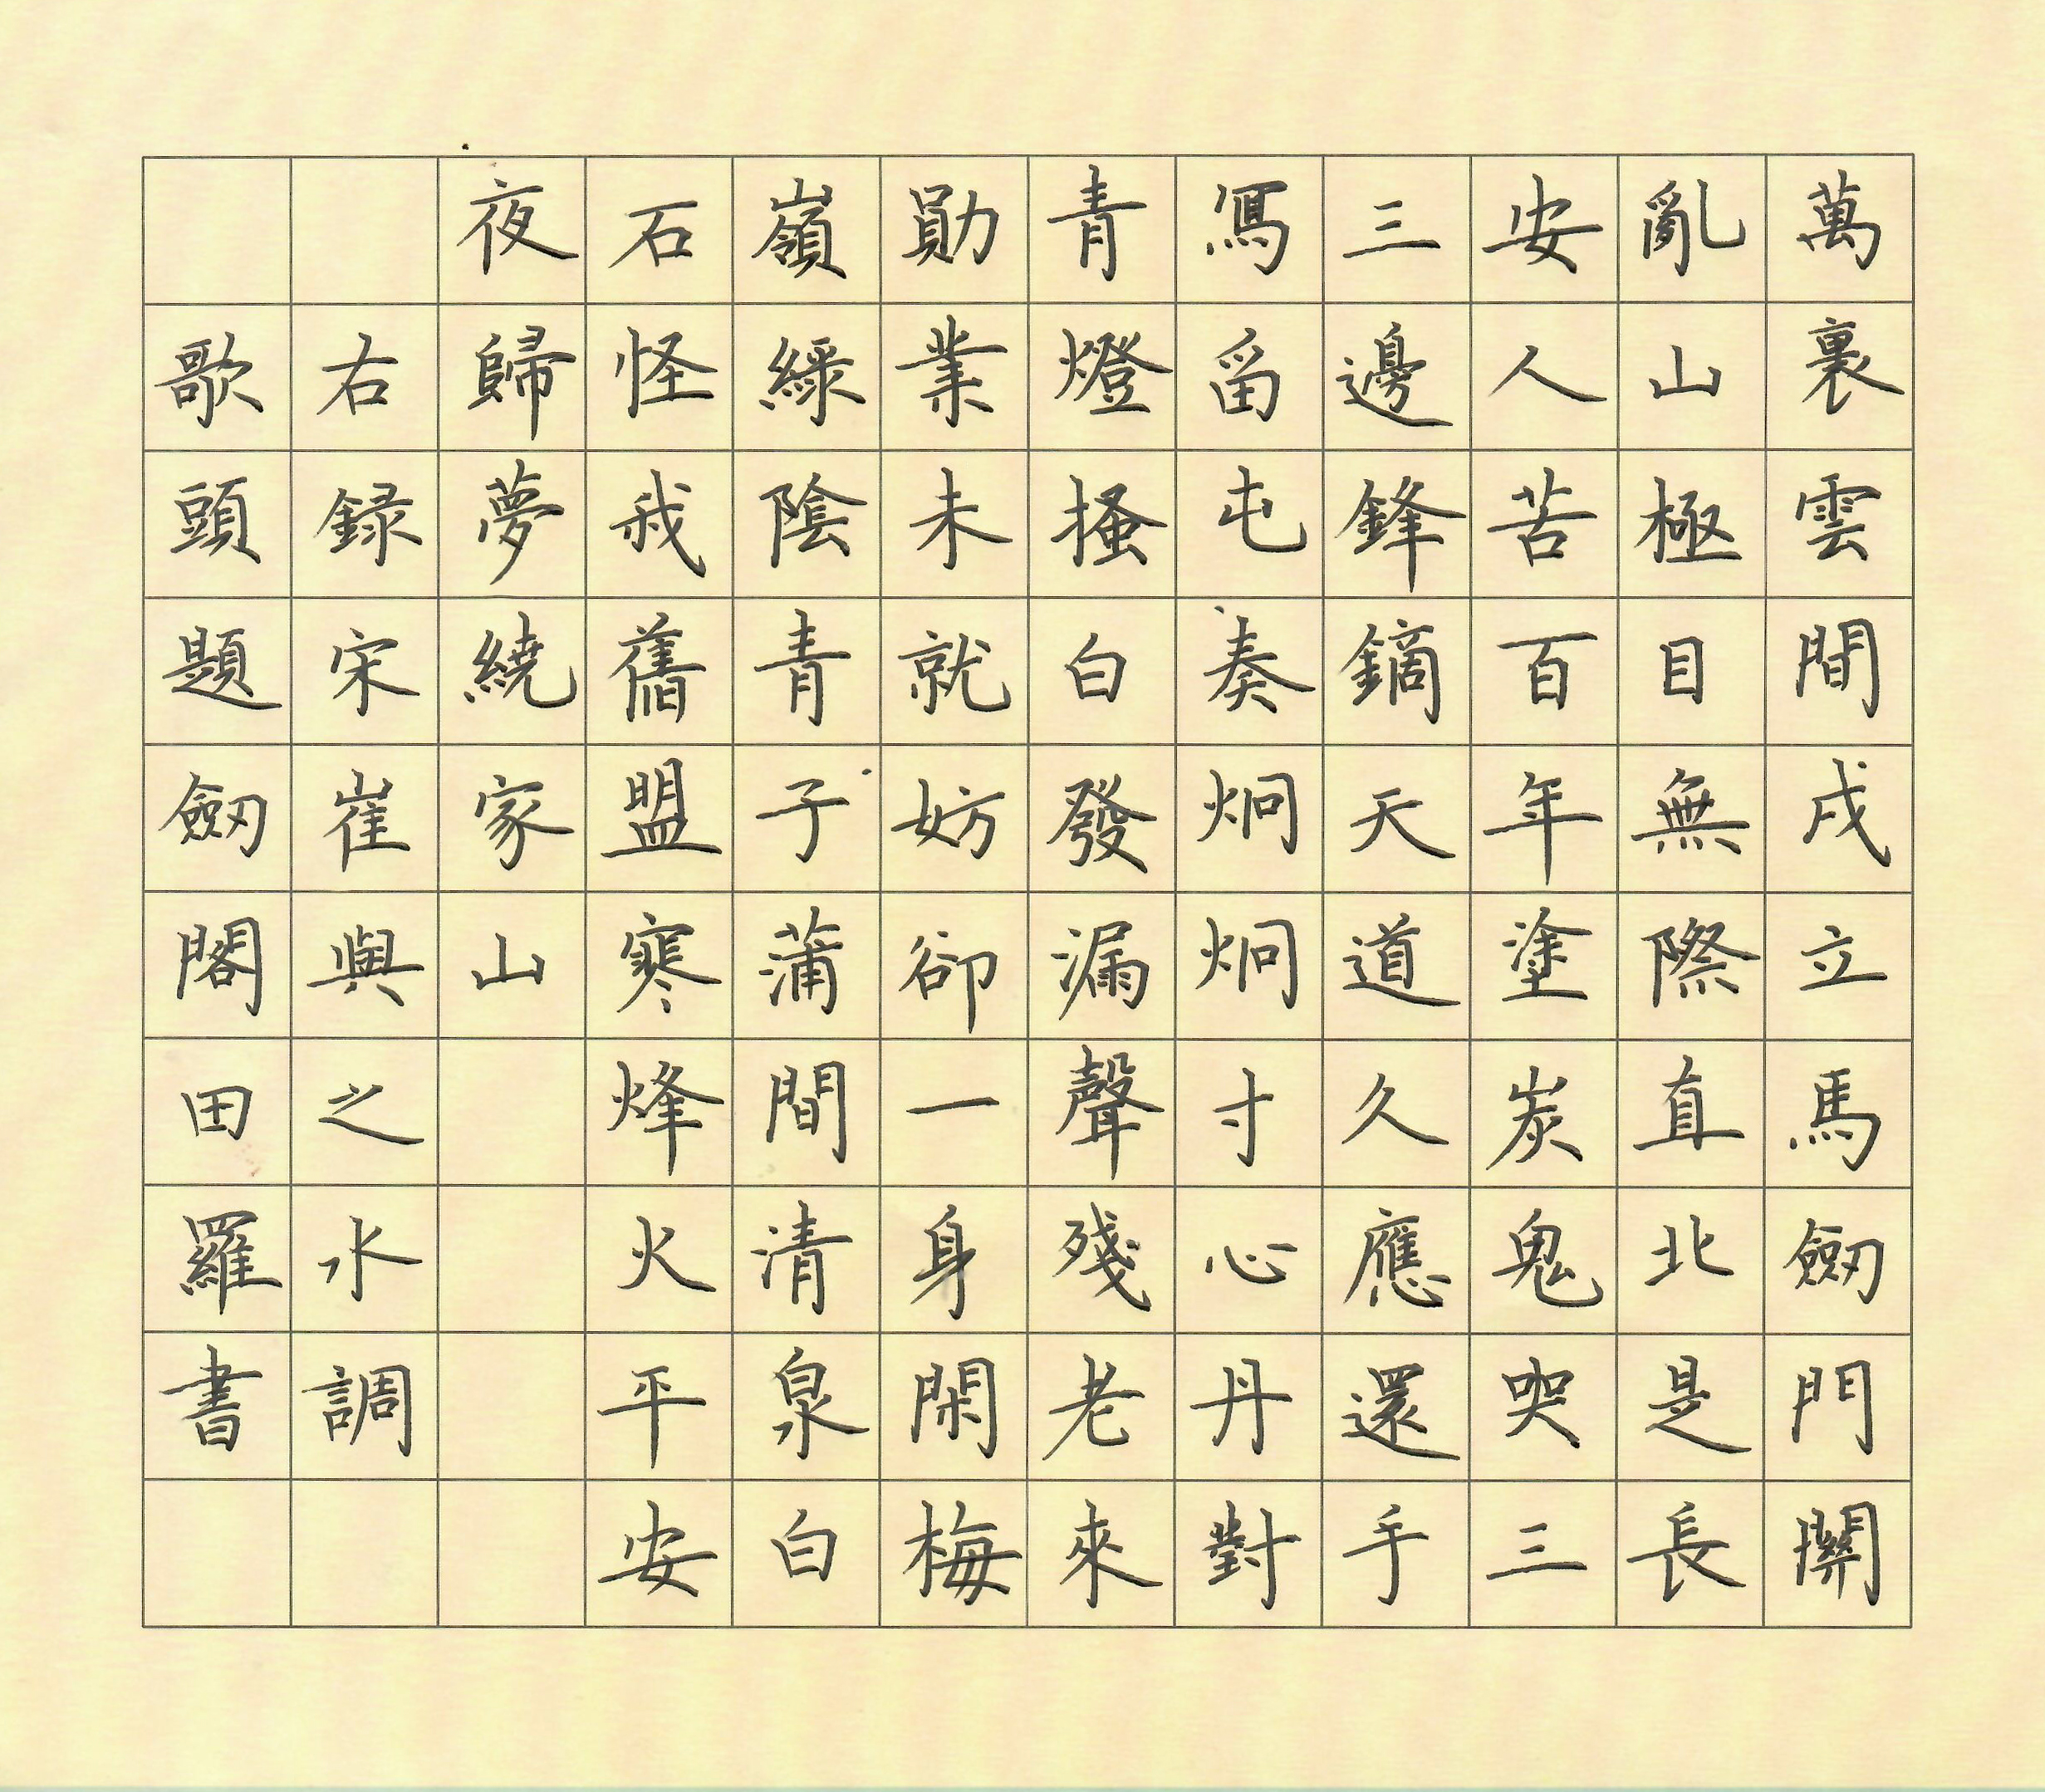 萬裏雲間戍立馬劒門關
亂山極目無際直北是長
安人苦百年塗炭鬼哭三
三邊鋒鏑天道久應還手
寫留屯奏炯炯寸心丹對
青燈搔白發漏聲殘老來
勛業未就妨卻一身閑梅
嶺綠陰青子蒲間清泉白
石怪我舊盟寒烽火平安
夜歸夢繞家山
右録宋崔與之水調
歌頭題劒閣田羅書